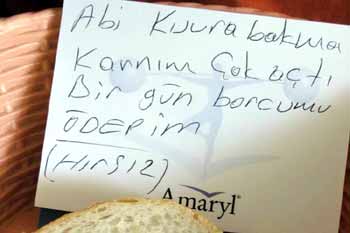 Abi Kusura bakma
Karnım çok açtı
Bir gün borcumu
ÖDERİM
(HIRSIZ)
Amaryl